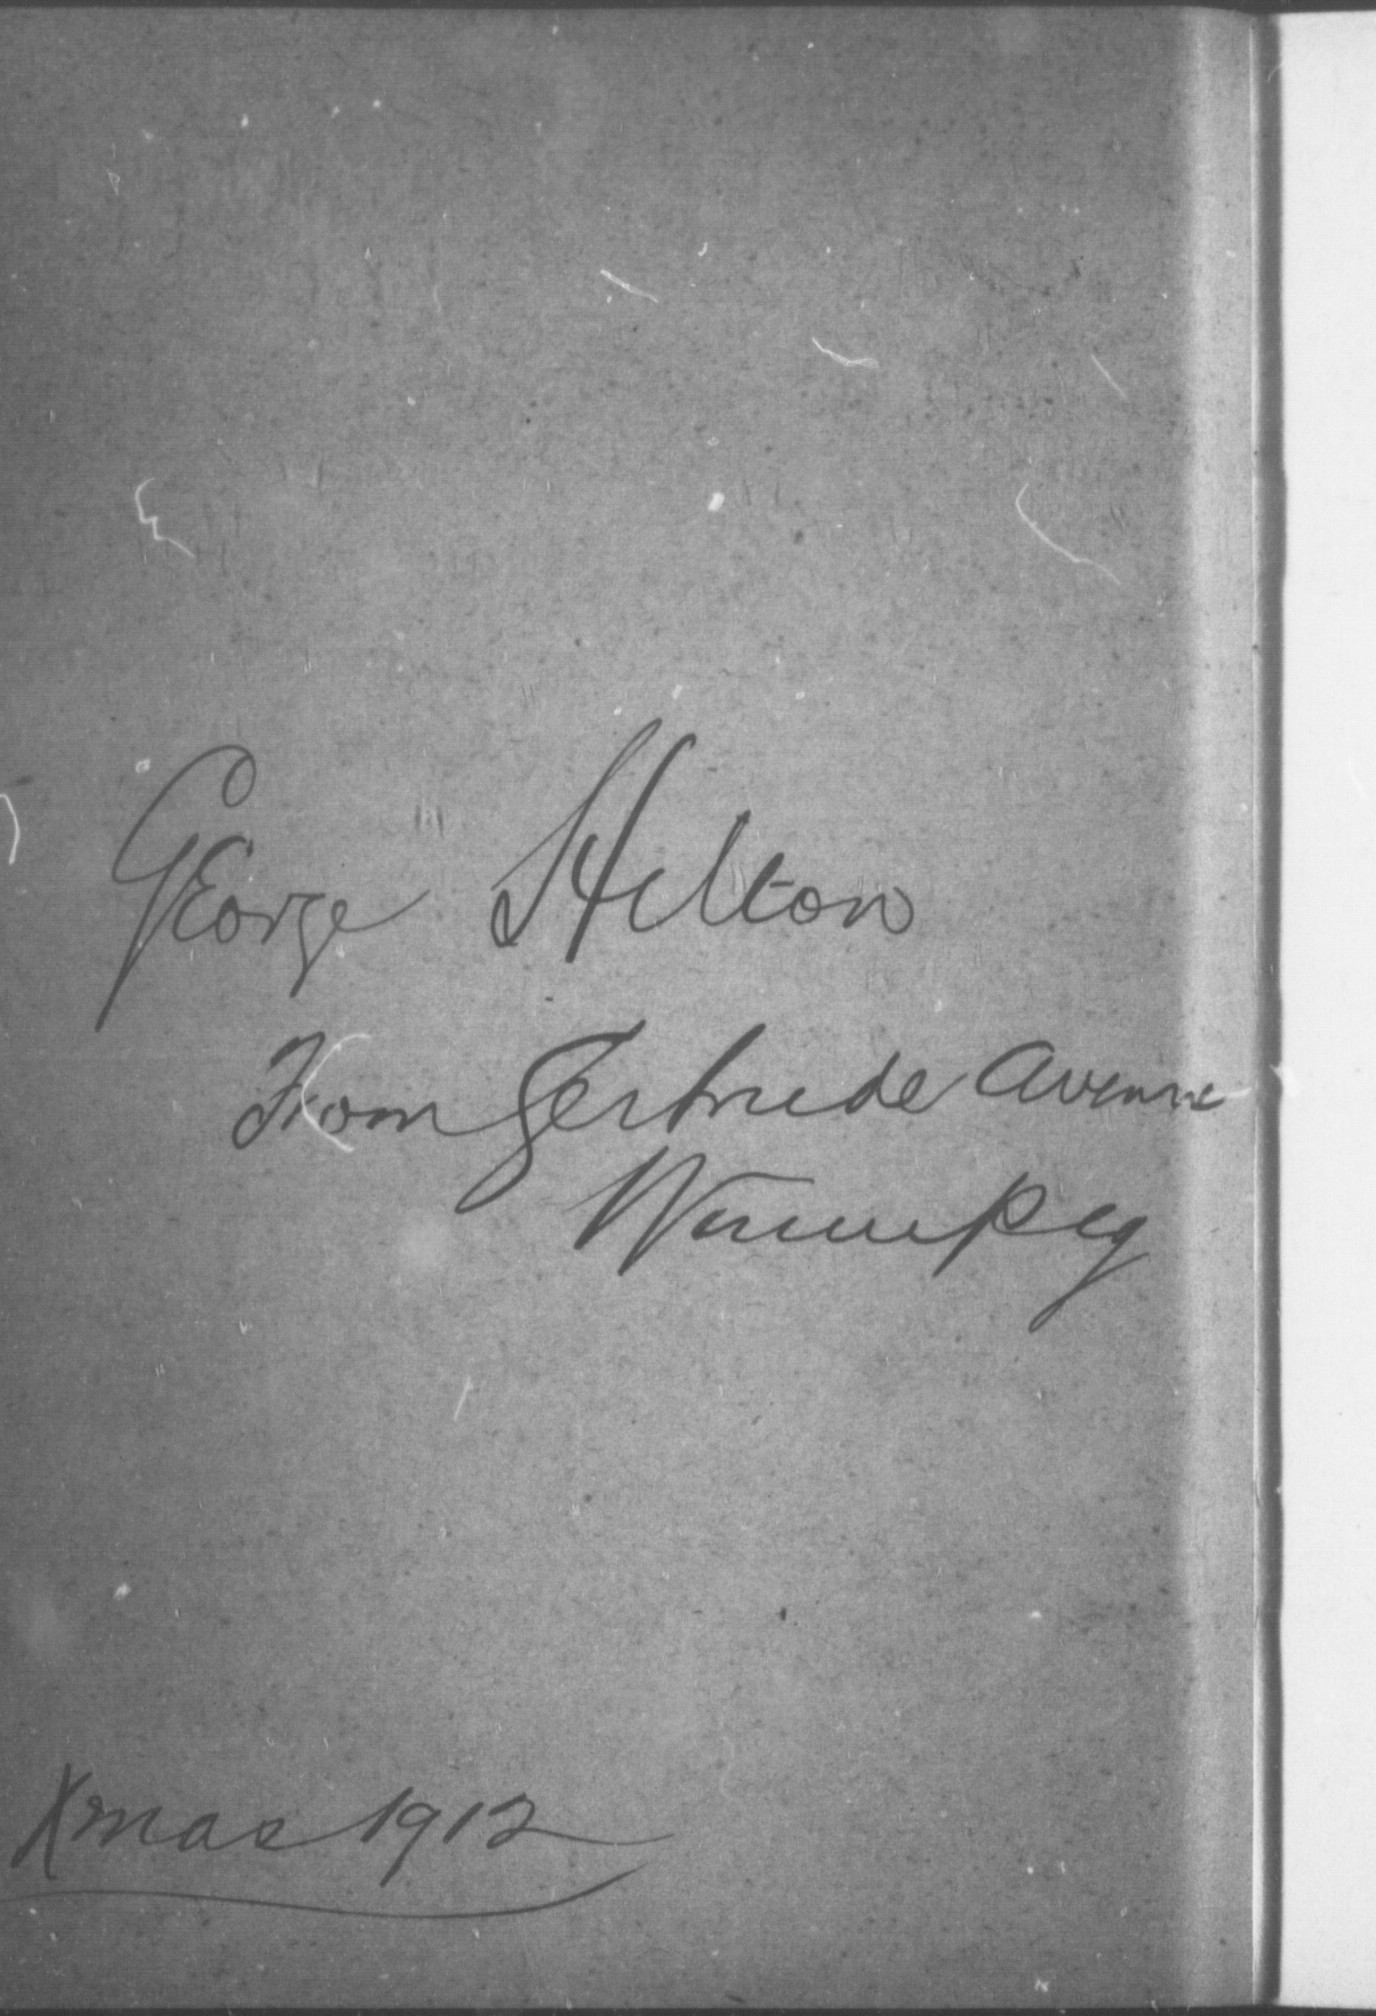 George Hilton
From Gertrude Avenue
Winnipeg
Xmas 1912